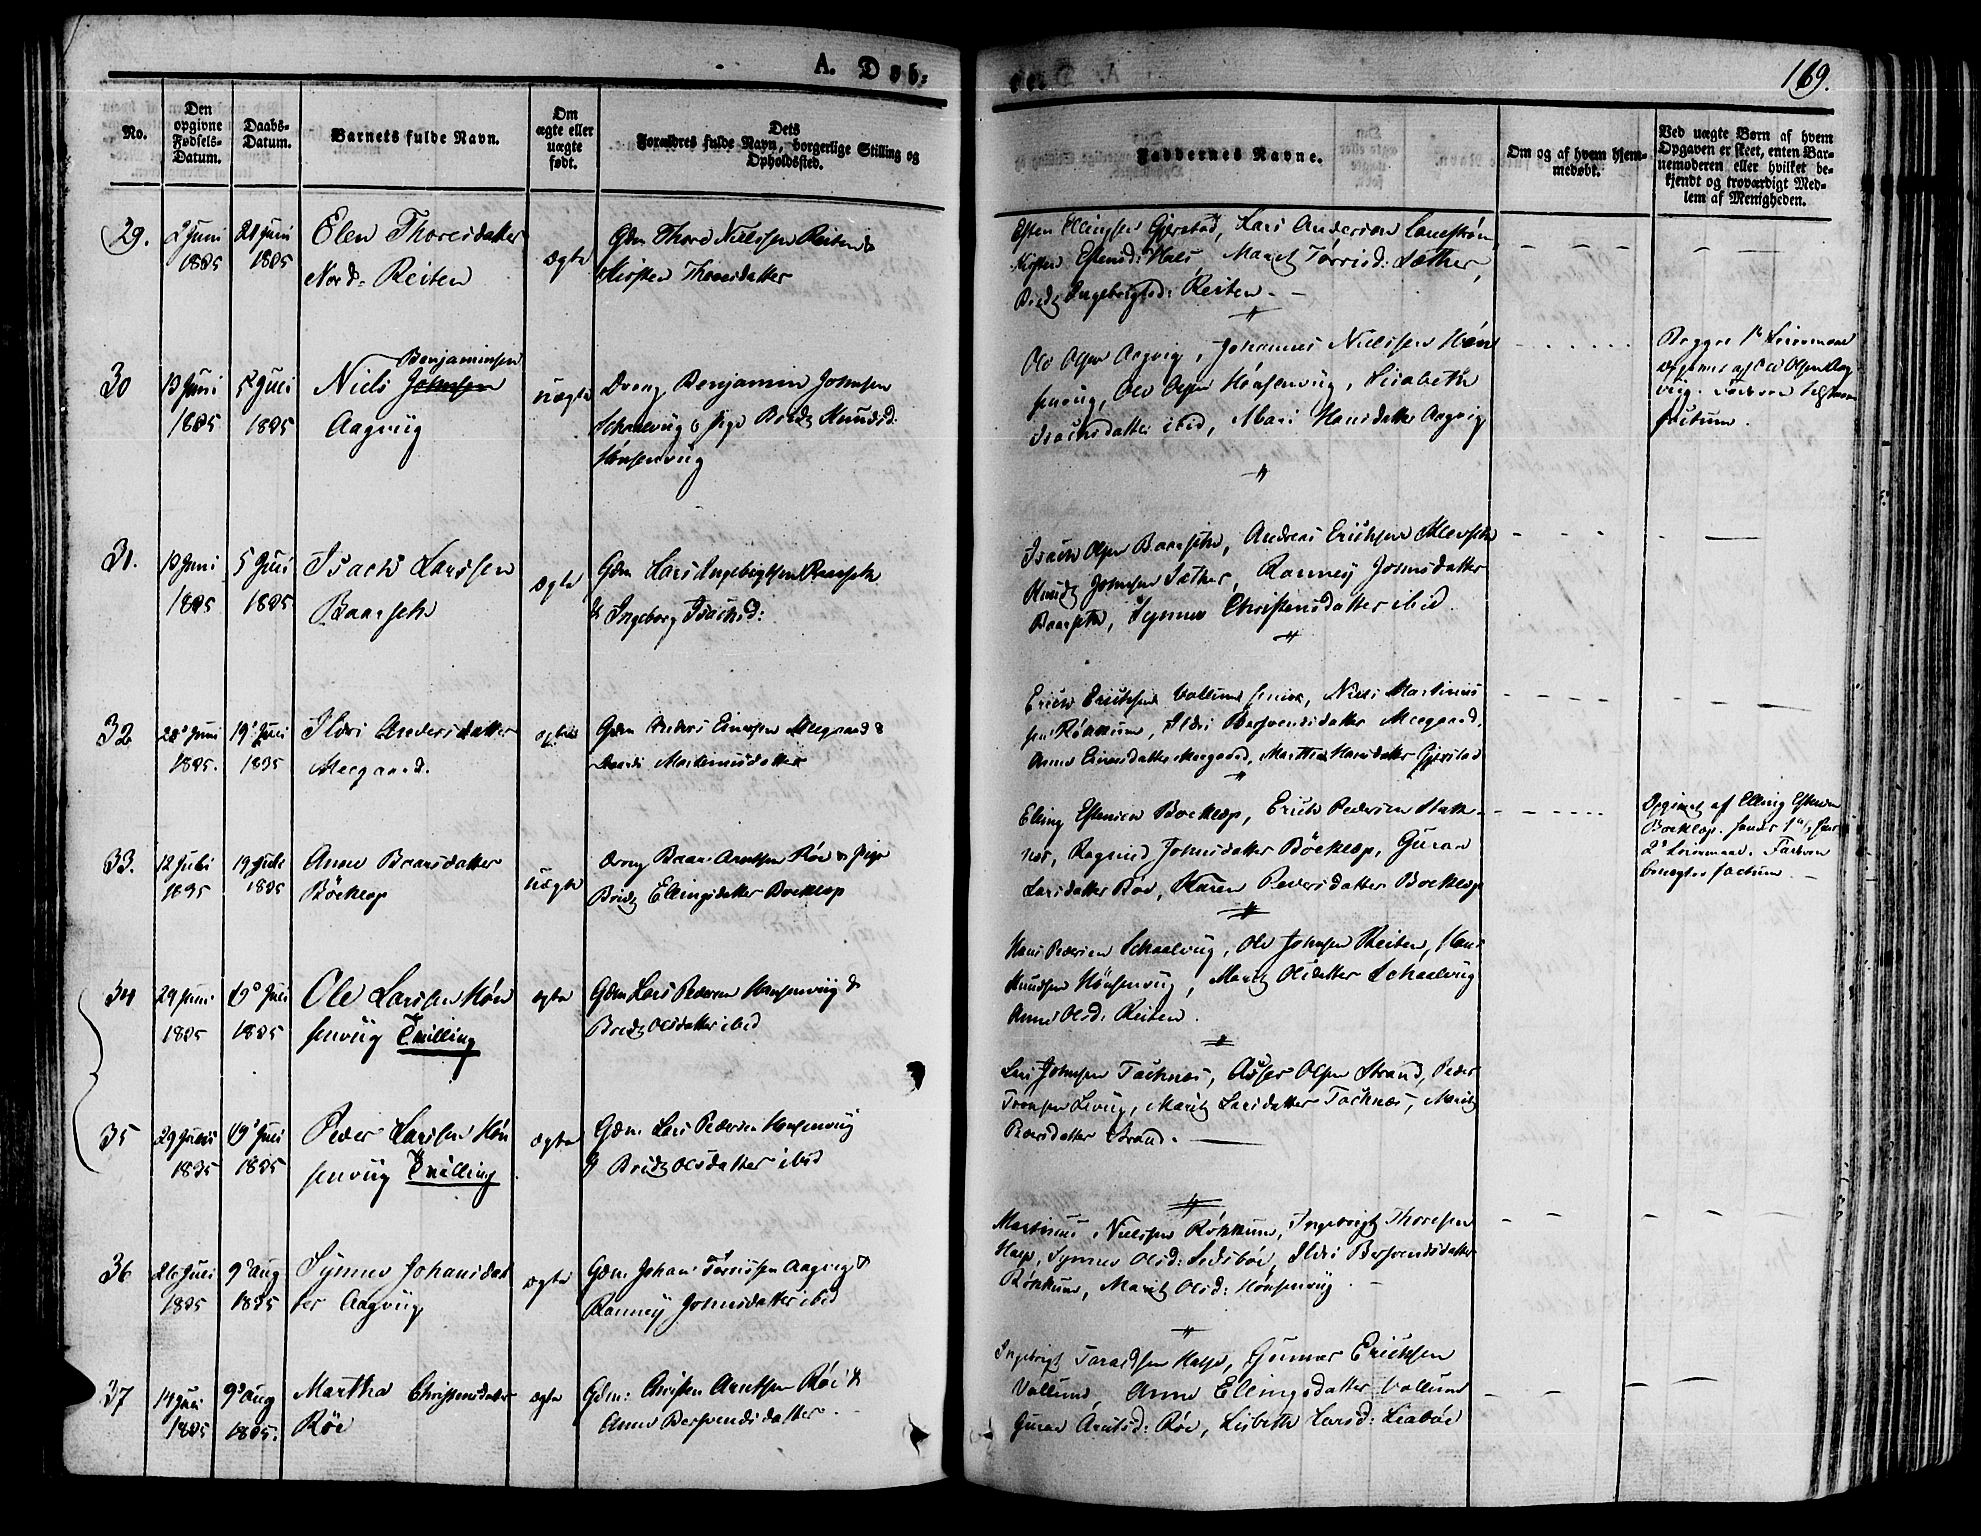 A. Døb:
169.
No.
Den opgivne Fødsels-Datum.
Daabs-Datum.
Barnets fulde Navn.
Om ægte eller uægte født.
Dets Forældres fulde Navn, borgerlige Stilling og Opholdssted.
Faddernes Navne.
Om og af hvem hjemmedøbt.
Ved uægte Børn af hvem
Opgaven er skeet, enten Bar-
nemoderen eller hvilket be-
kjendt og troværdigt Med-
lem af Menigheden.
29. 2 Juni 1835 21 Juni 1835
Elen Thoresdatter
Nord-Reiten
ægte
Gdm Thore Nielssen Reiten &
Kirsten Thoresdatter
Esten Ellingsen Gjerstad, Lars Andersen
Kirsten Estensd: Hals Marit Tørrisd: Sæther,
Bridt Ingebrigtsd: Reiten.
30 13 Juni 1835 5 Juli 1835
Benjaminsen
Niels Johnsen
Aagviig
uægte
Dreng Benjamin Johnsen
Schaalvug & Pige Bridt Knudsd:
Hønsenvug
Ole Olsen Aagvig, Johannes Nielssen Høn
senvug, Ole Olsen Hønsenvug, Lisabeth
Isachsdatter ibid, Mari Hansdatter Aagvig
Begges 1te Leiermaal
31. 10 Juni 1835 5 Juli 1835
Isach Larssen
Baarseth
ægte
Gdm Lars Ingebrigtsen Baarseth
& Ingeborg Isachsd:
Isach Olsen Baarseth, Andreas Erichsen
Knud Johnsen Sæther, Ranney Johnsdatter
Baarseth, Synnev Christensdatter ibid
32 28 Juni 1835. 19 Juli 1835
Ildri Andersdatter
Meegaard.
ægte
Gdm Anders Einersen Meegaard &
Martinusdatter
Erich Erichsen Vollum, Niels Martinus
sen Røkkum, Ildri Bersvendsdatter Meegaard,
Anne Einersdatter Meegaard, Martha Hansdatter Gjerstad
33. 12 Juli 1835 19 Juli 1835
Anne Baarsdatter
Böeklep
uægte
Dreng Baar Arntsen Röe & Pige
Bridt Ellingsdatter Boeklep
Elling Estensen Boeklep, Erich Pedersen
Ragnild Johnsdatter Böeklep, Guran
Larsdatter Röe, Karen Pedersdatter Boeklep
Opgivet af Elling Estensen
Boeklep.
2det Leiermaal. Faderen
benegter factum.
34 29 Juni 1835 19 Juli 1835
Ole Larssen Høn
senviig Tvilling
ægte
Gdm Lars Pedersen Hønsenviig &
Bridt Olsdatter ibid
Hans Pedersen Schaalvug, Ole Johnsen Reiten, Hans
Knudsen Hönsenvug, Marit Olsdatter Schaalvug
Anne Olsd: Reiten.
35 29 Juni 1835 19 Juli 1835
Peder Larssen Høn
senviig Tvilling
ægte
Gdm. Lars Pedersen Hønsenviig
& Bridt Olsdatter ibid
Lars Johnsen Tacknes, Asser Olsen Strand, Peder
Marit Larsdatter Tacknes, Marit
Pedersdatter Strand.
36 26 Juli 1835 9 Aug 1835
Synnev Johansdat
ter Aagviig
ægte
Gdm. Johan Tørrissen Aagvig &
Ranney Johnsdatter ibid
Martinus Nielssen Røkkum, Ingebrigt Thoresen
Synnev Olsd: Ildri Bersvendsdatter
Røkkum, Marit Olsd: Hønsenviig
37 14 Juli 1835 9 Aug 1835.
Martha Christensdatter
Röe
ægte
Gdm: Christen Arntsen Röe &
Anne Bersvendsdatter.
Ingebrigt Gunner Erichsen
Vollum, Anne Ellingsdatter Vollum
Guran Arntsd: Röe, Lisbeth Larsd: Liaböe